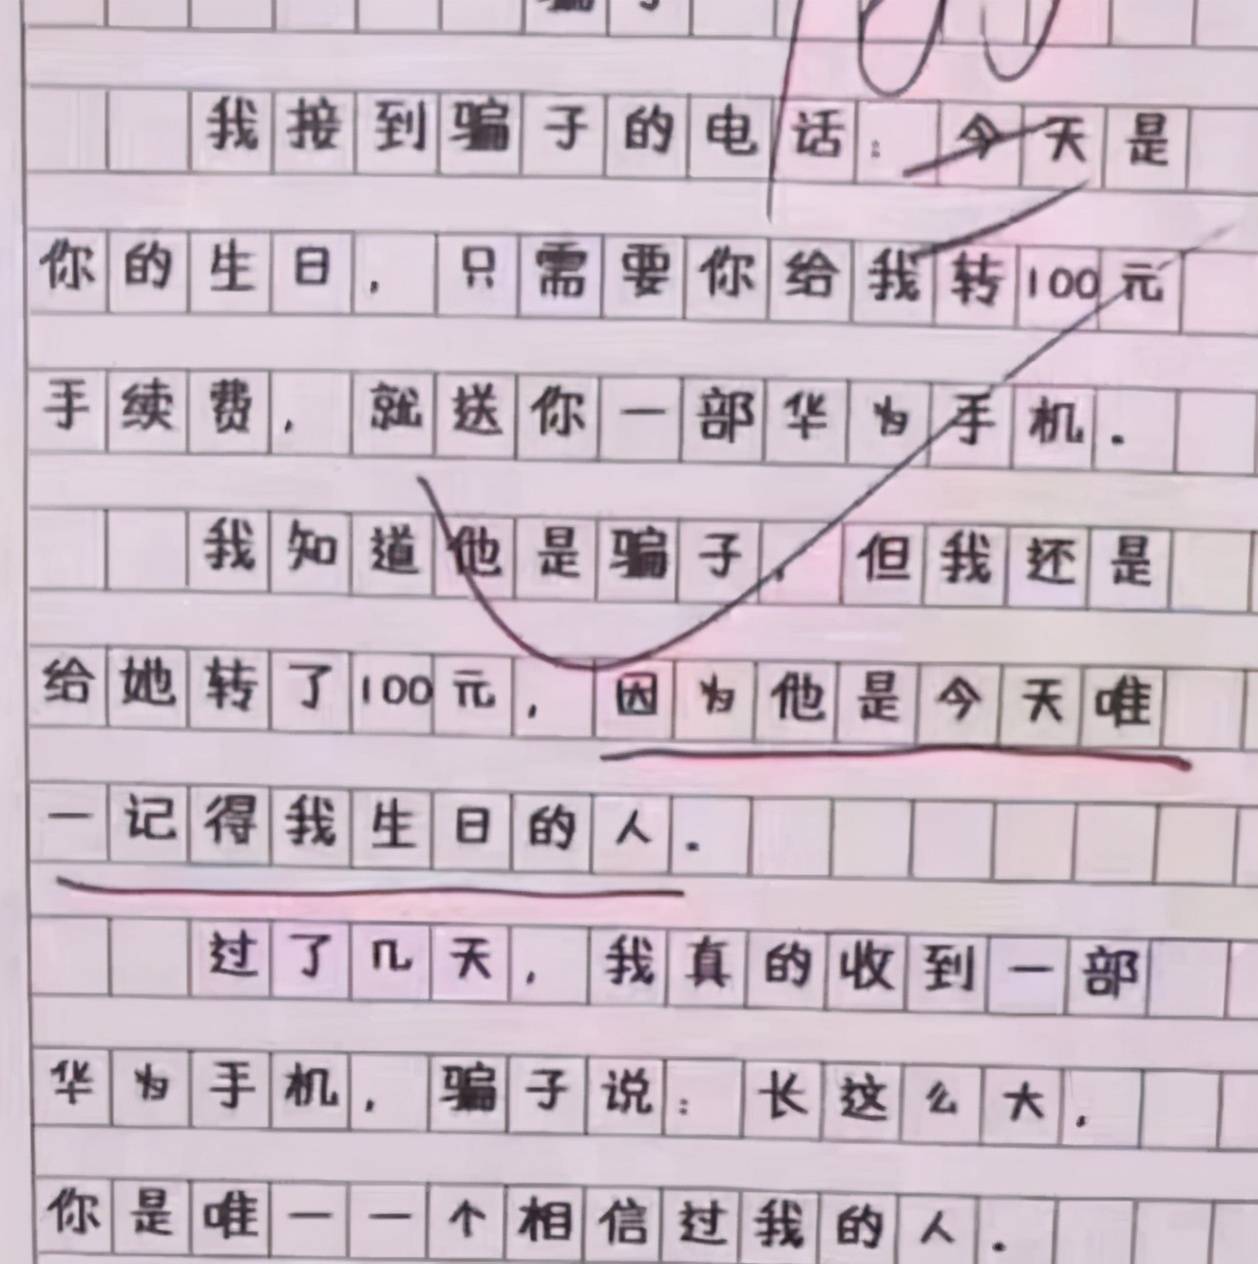 骗子
我接到骗子的电话：今天是
你的生日，只需要你给我转100元
手续费，就送你一部华为手机.
我知道他是骗子，但我还是
给她转了100元，因为他是今天唯
一记得我生日的人.
过了几天，我真的收到一部
华为手机，骗子说：长这么大，
你是唯一一个相信过我的人.